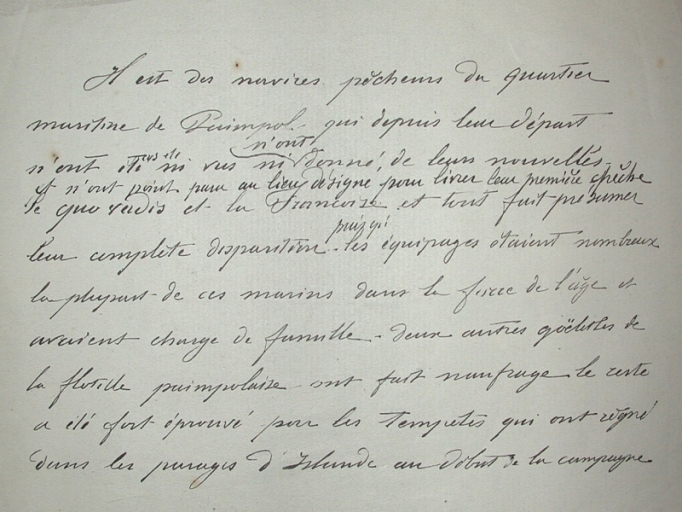 Il est des navires pêcheurs du quartier
maritime de Paimpol. qui depuis leur départ
n'ont
n'ont été ni vus ni donné, de leurs nouvelles
et n'ont point paru au lieu désigné pour livrer leur première pêche
le quo vadis et la Françoise et tout fait présumer
leur complète disparition. les équipages étaient nombreux
la plupart de ces marins dans la force de l'âge et
avaient charge de famille - deux autres goëlettes de
la flotille paimpolaise ont fait naufrage le reste
a été fort éprouvé par les tempetes qui ont règné
dans les parages d'Islande au début de la campagne